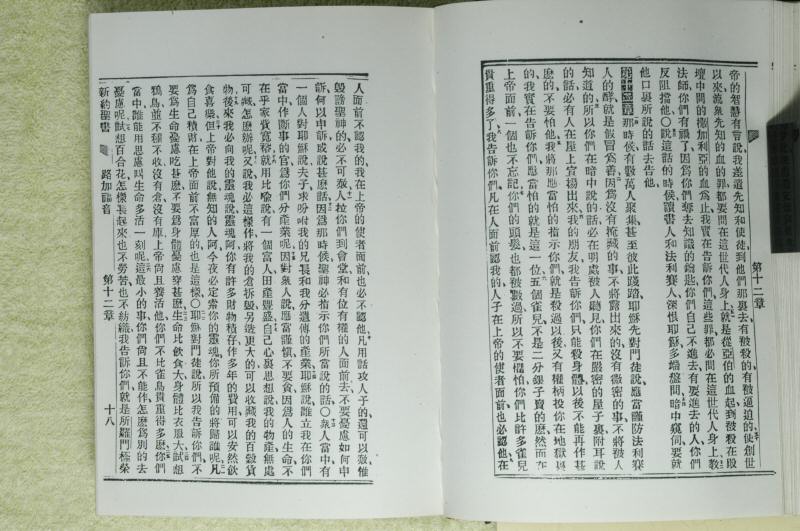 第十二章
帝的智慧有言說我差遣先知和使徒到他們那裏去有被殺的有被逼迫的使創世
以來流衆先知的血的罪都要問在這世代人身上就是從亞伯的血起到被殺在殿
壇中間的撒加利亞的血爲止我實在告訴你們這些罪都必問在這世代人身上教
法師你們有禍了因爲你們奪去知識的鑰匙你們自己不進去有要進去的人你們
反阻擋他○說這話的時候讀書人和法利賽人深恨耶穌多端盤問暗中窺伺要就
他口裏所說的話去告他
第十二章那時候有數萬人聚集甚至彼此踐踏耶穌先對門徒說應當謹防法利賽
人的酵就是假冒爲善因爲沒有掩藏的事不將露出來的沒有隱密的事不將被人
知道的所以你們在暗中說的話必在明處被人聽見你們在嚴密的屋子裏附耳說
的話必有人在屋上宣揚出來我的朋友我告訴你們只能殺身體以後不能再作甚
麽的不要怕他我將那應當怕的指示你們就是殺過以後又有權柄投你在地獄裏
的我實在告訴你們應當怕的就是這一位五個雀兒不是二分銀子賣的麽然而在
上帝面前一個也不忘記你們的頭髮也都被數過所以不要懼怕你們比許多雀兒
貴重得多了我告訴你們凡在人面前認我的人子在上帝的使者面前也必認他在
人面前不認我的我在上帝的使者面前也必不認他凡用話攻人子的還可以赦惟
毀謗聖神的必不可赦人拉你們到會堂和有位有權的人面前去不要憂慮如何申
訴何以申訴或說甚麽話因爲那時候聖神必指示你們所當說的話○衆人當中有
一個人對耶穌說夫子求吩咐我的兄長和我分遺傳的產業耶穌說誰立我在你們
當中作斷事的官爲你們分產業呢因對衆人說應當謹愼不要貪因爲人的生命不
在乎家貲寬裕就用比喩說有一個富人田產豐盛自己心裏思想說我的物產無處
可藏怎麽辦呢又說我必這樣作將我的倉拆毀另造更大的可以收藏我的百穀貨
物後來我必向我的靈魂說靈魂阿你有許多財物積存作多年的費用可以安然飮
食喜樂但上帝對他說無知的人阿今夜必定索你的靈魂你所預備的將歸誰呢凡
爲自己積財在上帝面前不富厚的也是這樣○耶穌對門徒說所以我告訴你們不
要爲生命憂慮吃甚麽不要爲身體憂慮穿甚麽生命比飮食大身體比衣服大試想
鴉鳥並不種不收沒有倉沒有庫上帝尙且養活他你們不比雀鳥貴重得多麽你們
當中誰能用思慮叫生命多活一刻呢這最小的事你們尙且不能作怎麽爲別的去
憂慮呢試想百合花怎樣長起來也不勞苦也不紡織我告訴你們就是所羅門極榮
新約聖書 路加福音 第十二章 十八